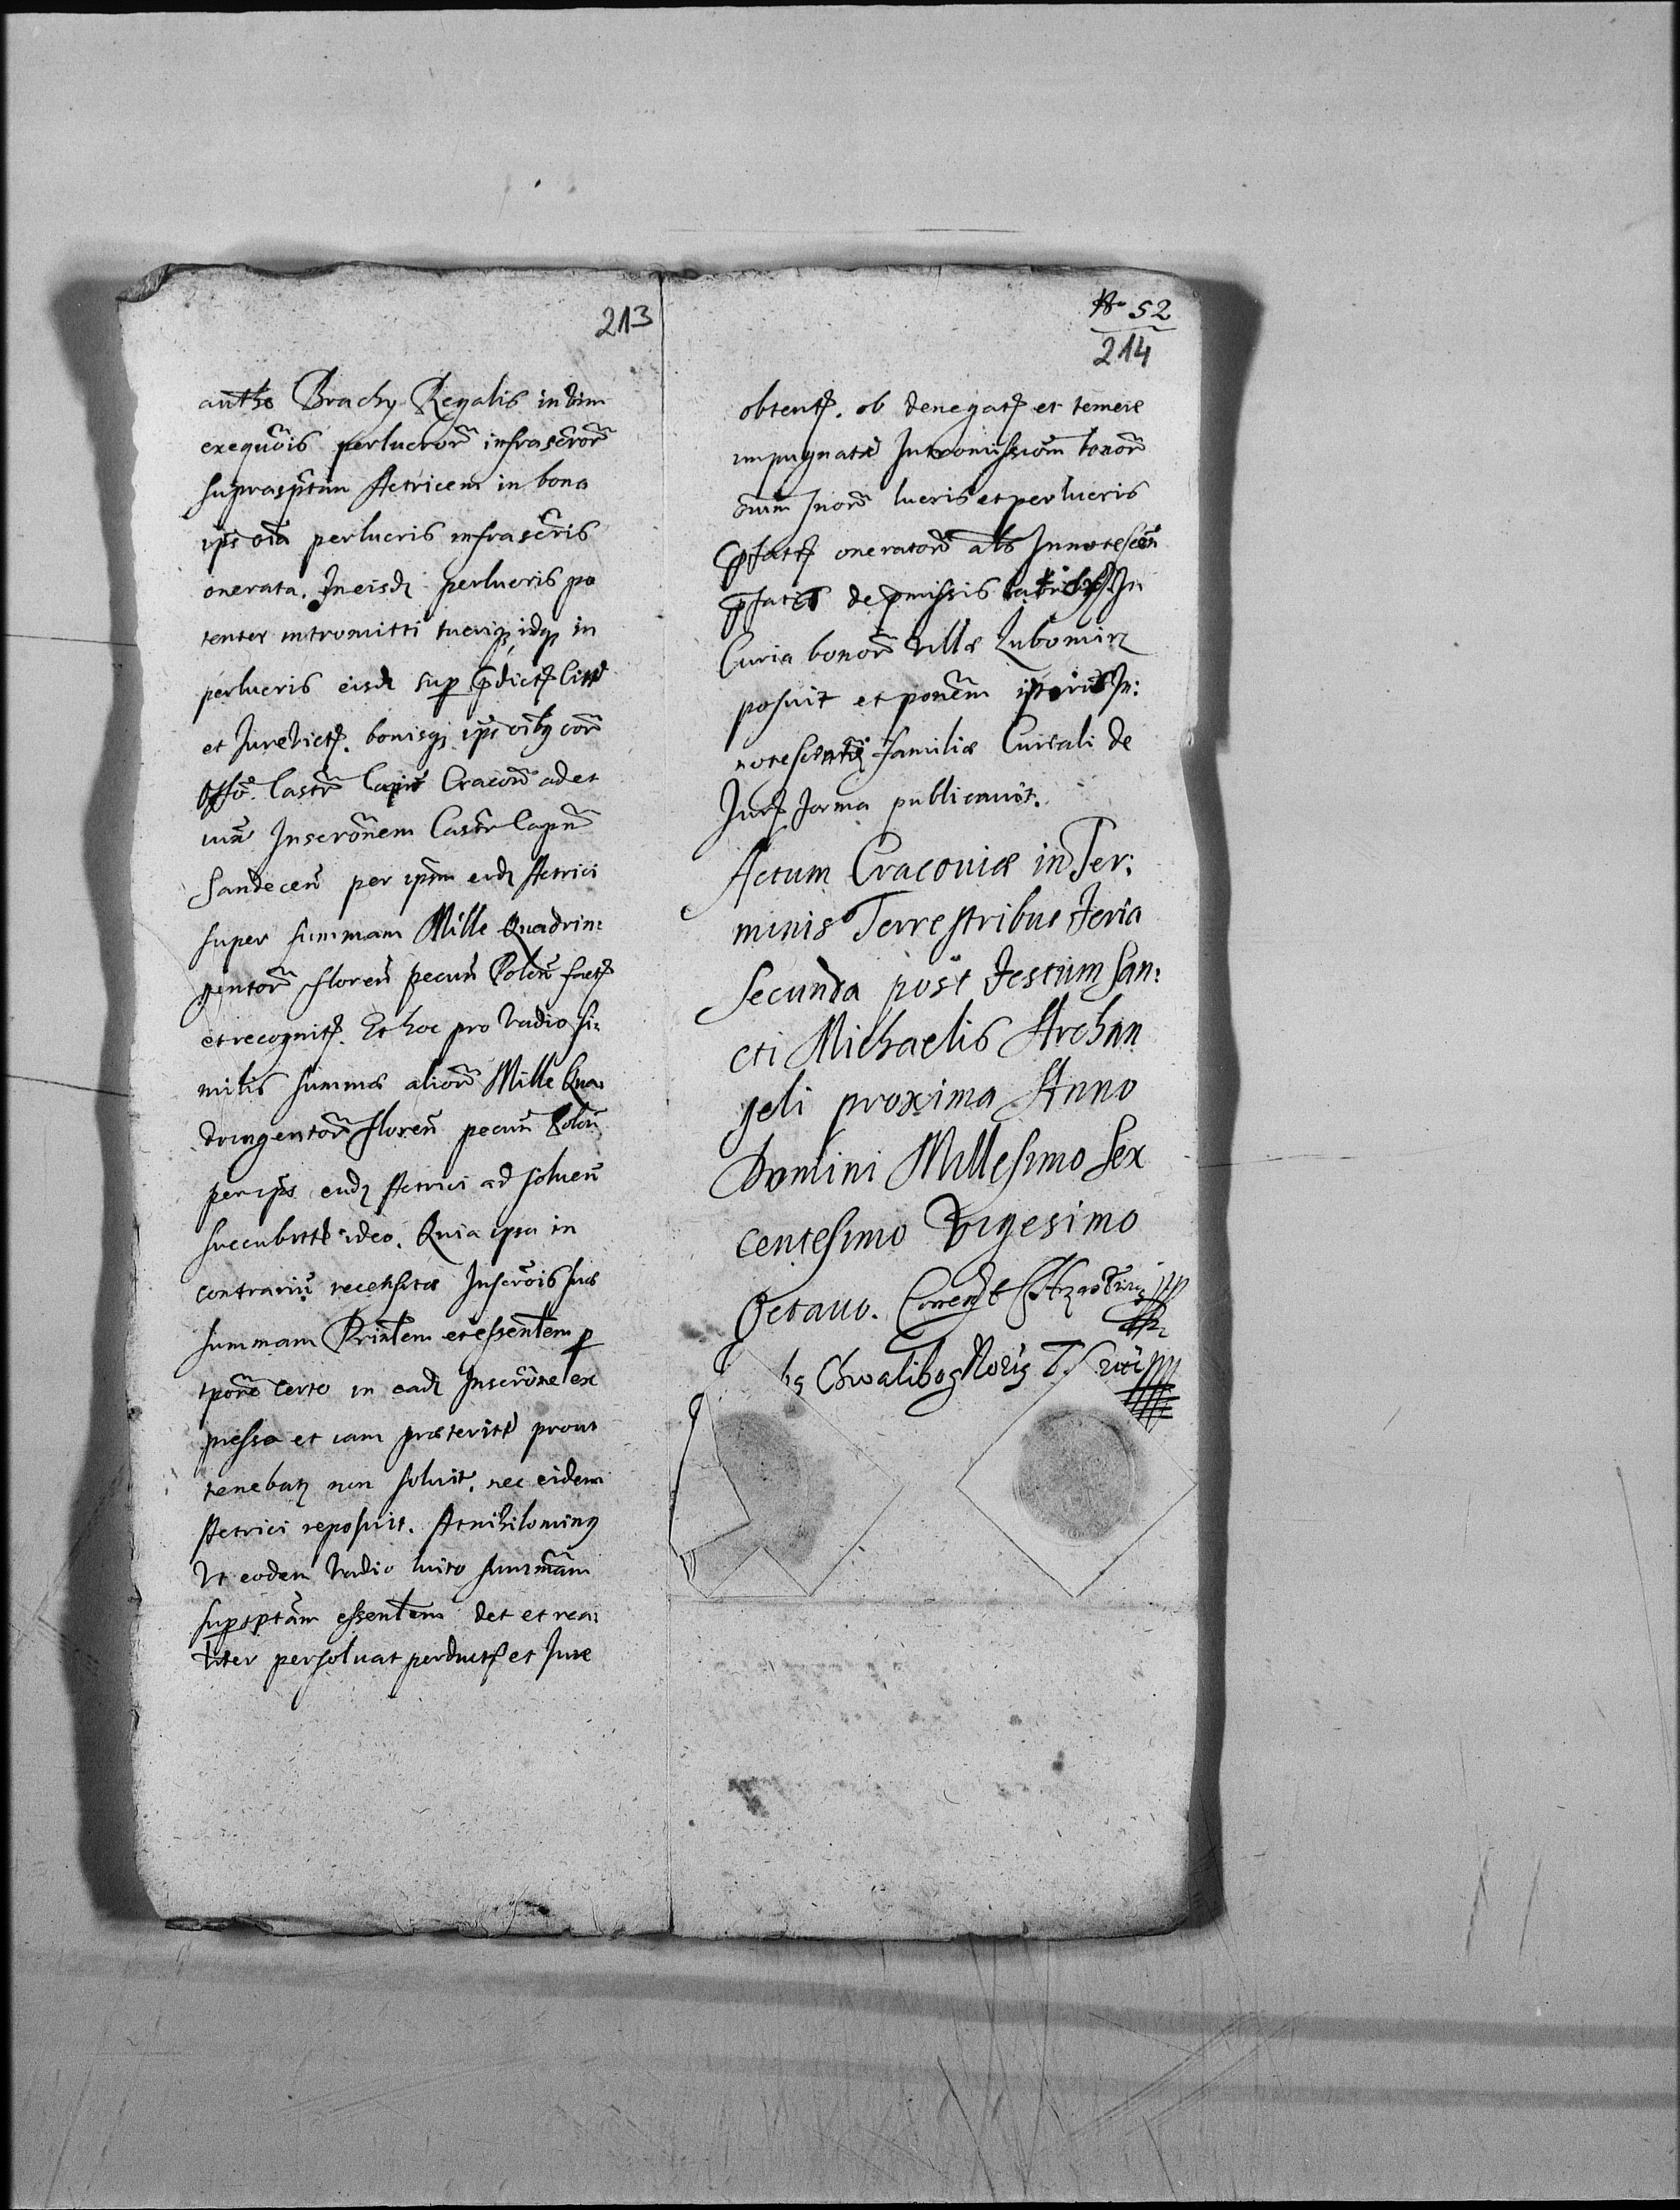 213
auths Brachy Regalis in vim
exequois perlucror̃ infrascror̃
suprasptam Actricem in bona
ips oia perlucris infrascris
onerata. In eisdē perlucris po
tenter intromitti tueriq, idq, in
perlucris eisdē sup pdictē
et Jurevictē. bonisq, ips oib9 cor̃
Offo. Castr̃ Capit Cracoñ ad et
Inscronem Castr Capn̄
Sandeceñ per ipsm eidē Actrici
super summam Mille Quadrin:
gentor̃ floreñ pecuñ Poloñ factē
et recognitē. Et hoc pro Vadio si:
milis summæ alior̃ Mille Qua:
dringentor̃ floreñ pecuñ Poloñ
per ips eidē Actrici ad solueñ
ideo. Quia ipsa in
contrariũ recensitæ Inscrois suæ
summam Printem et essentem p
tpore certo in eadē Inscrone ex
pressa et iam præterite prout
tenebatr non soluit, nec eidem
Actrici reposuit. At nihilomin9
Vt eodem Vadio luito summam
supsptam essentem det et rea:
liter persoluat perductē et Jure
№ 52
214
obtentē. ob denegatē et temere
impugnatā Intromissiom bonor̃
suor̃ lucris et perlucris
pfatē onerator̃ als Innotesceñ
pfatæ de pmissis In
Curia bonor̃ Villæ Lubomirz
posuit et poneñ In:
familiæ Curiali de
Jurē forma publicauit.
Actum Cracoviæ in Ter:
minis Terrestribus Feria
Secunda post Festum San:
cti Michaelis Archan
geli proxima Anno
Domini Millesimo Sex
centesimo Vigesimo
Octauo.
Chwalibog